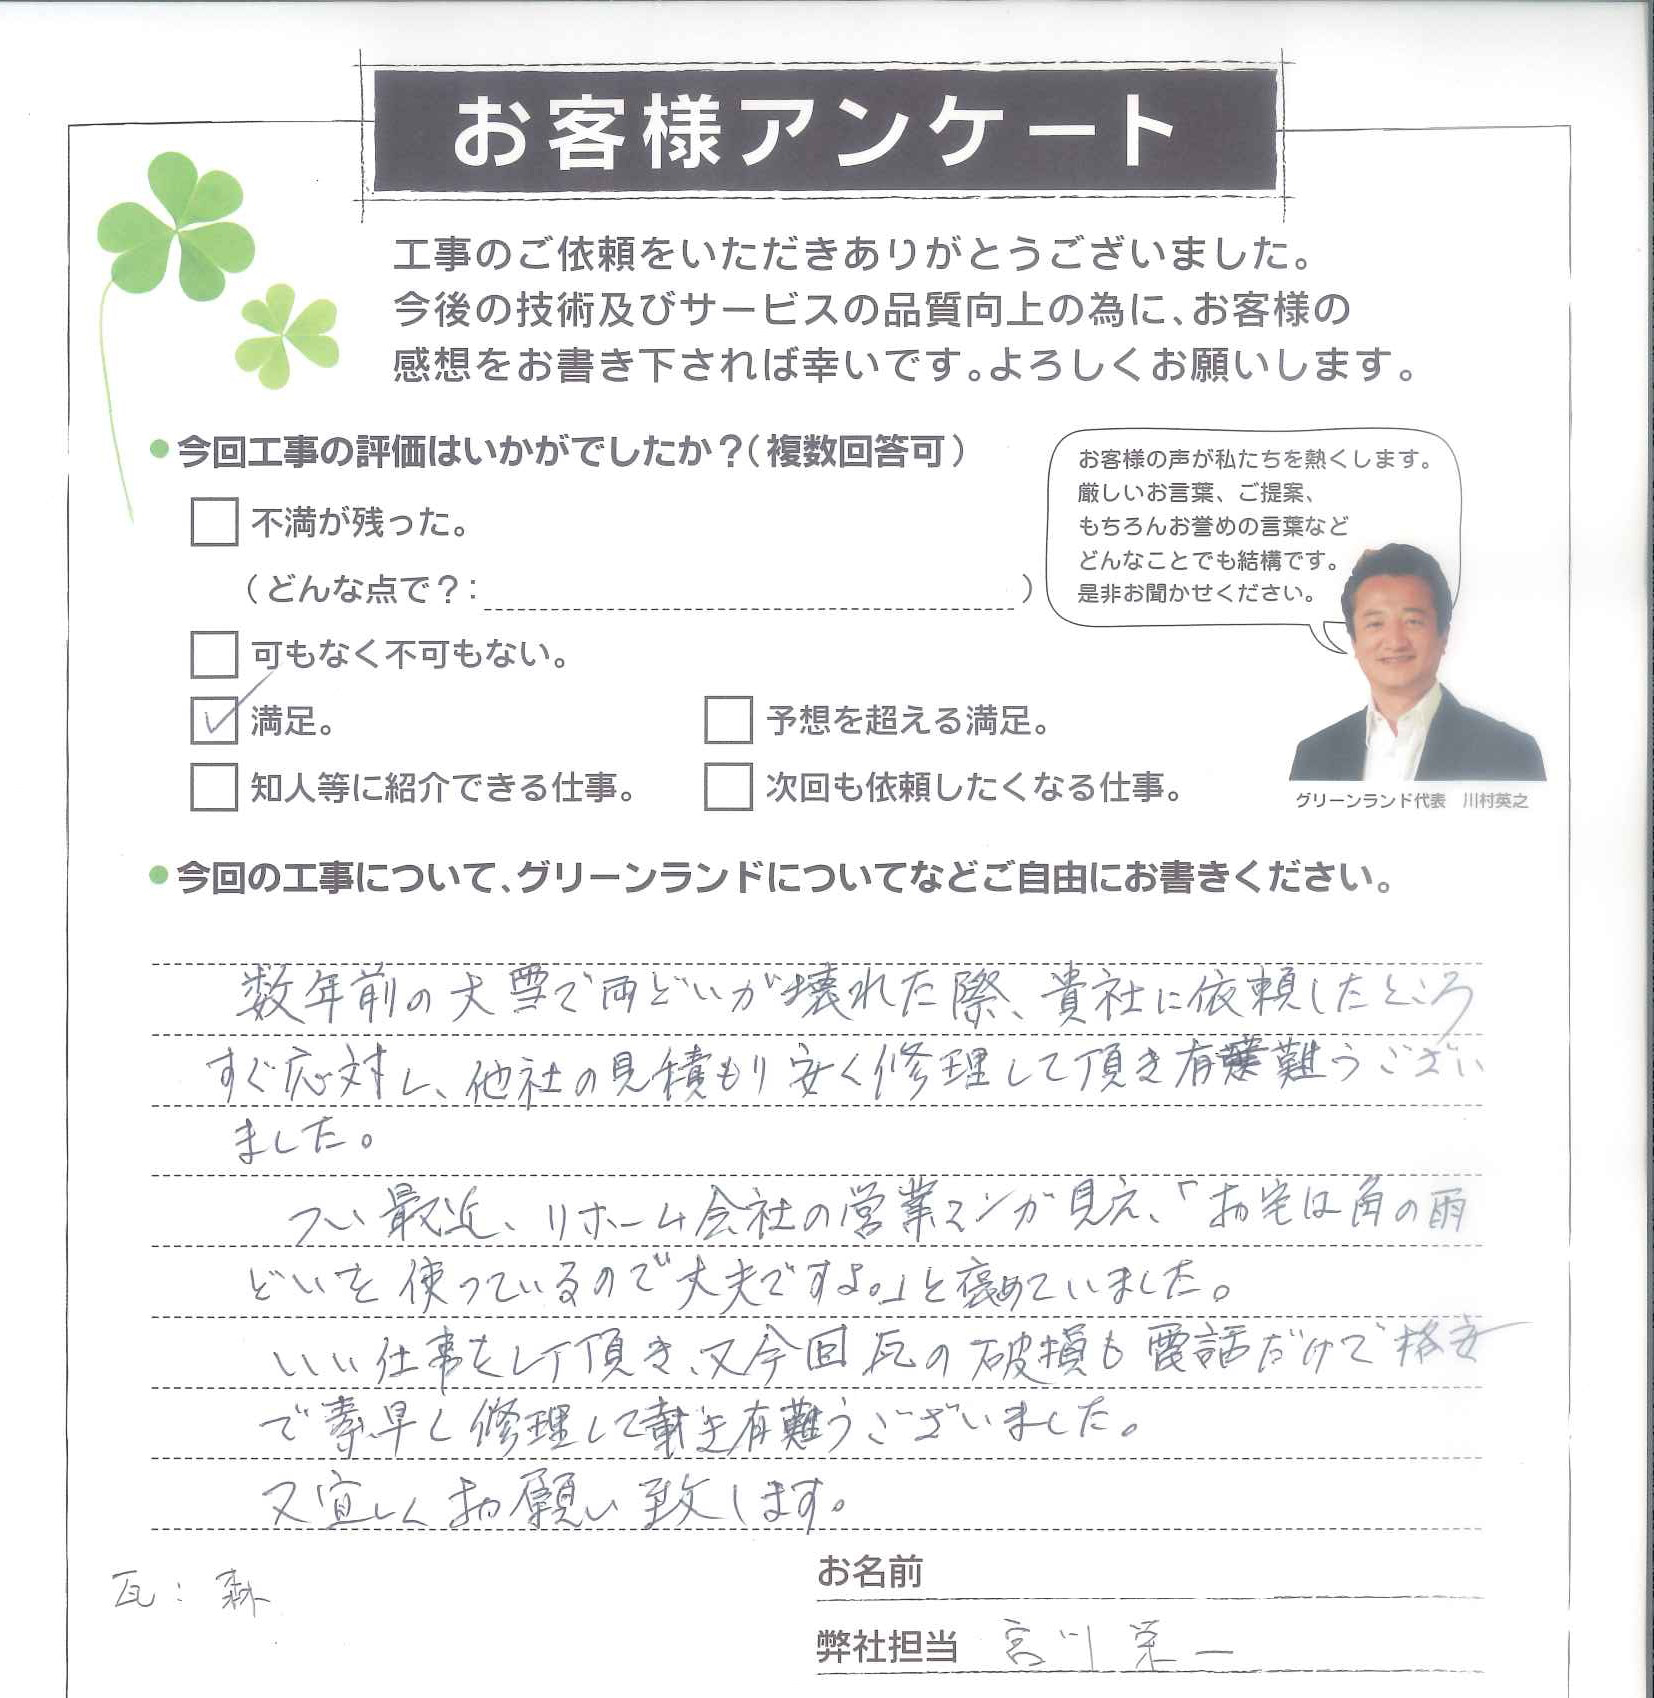 お客様アンケート
工事のご依頼をいただきありがとうございました。
今後の技術及びサービスの品質向上の為に、お客様の
感想をお書き下されば幸いです。よろしくお願いします。
●今回工事の評価はいかがでしたか？（複数回答可）
不満が残った。
（どんな点で？：　）
可もなく不可もない。
満足。
予想を超える満足。
知人等に紹介できる仕事。
次回も依頼したくなる仕事。
お客様の声が私たちを熱くします。
厳しいお言葉、ご提案、
もちろんお誉めの言葉など
どんなことでも結構です。
是非お聞かせください。
グリーンランド代表　川村英之
●今回の工事について、グリーンランドについてなどご自由にお書きください。
数年前の大雪で雨どいが壊れた際、貴社に依頼したところ
すぐ応対し、他社の見積もり安く修理して頂き有難うござい
ました。
つい最近、リホーム会社の営業マンが見え、「お宅は角の雨
どいを使っているので丈夫ですよ。」と褒めていました。
いい仕事をして頂き、又今回瓦の破損も電話だけで格安
で素早く修理して戴き有難うございました。
又宜しくお願い致します。
瓦：森
お名前
弊社担当　宮川栄一